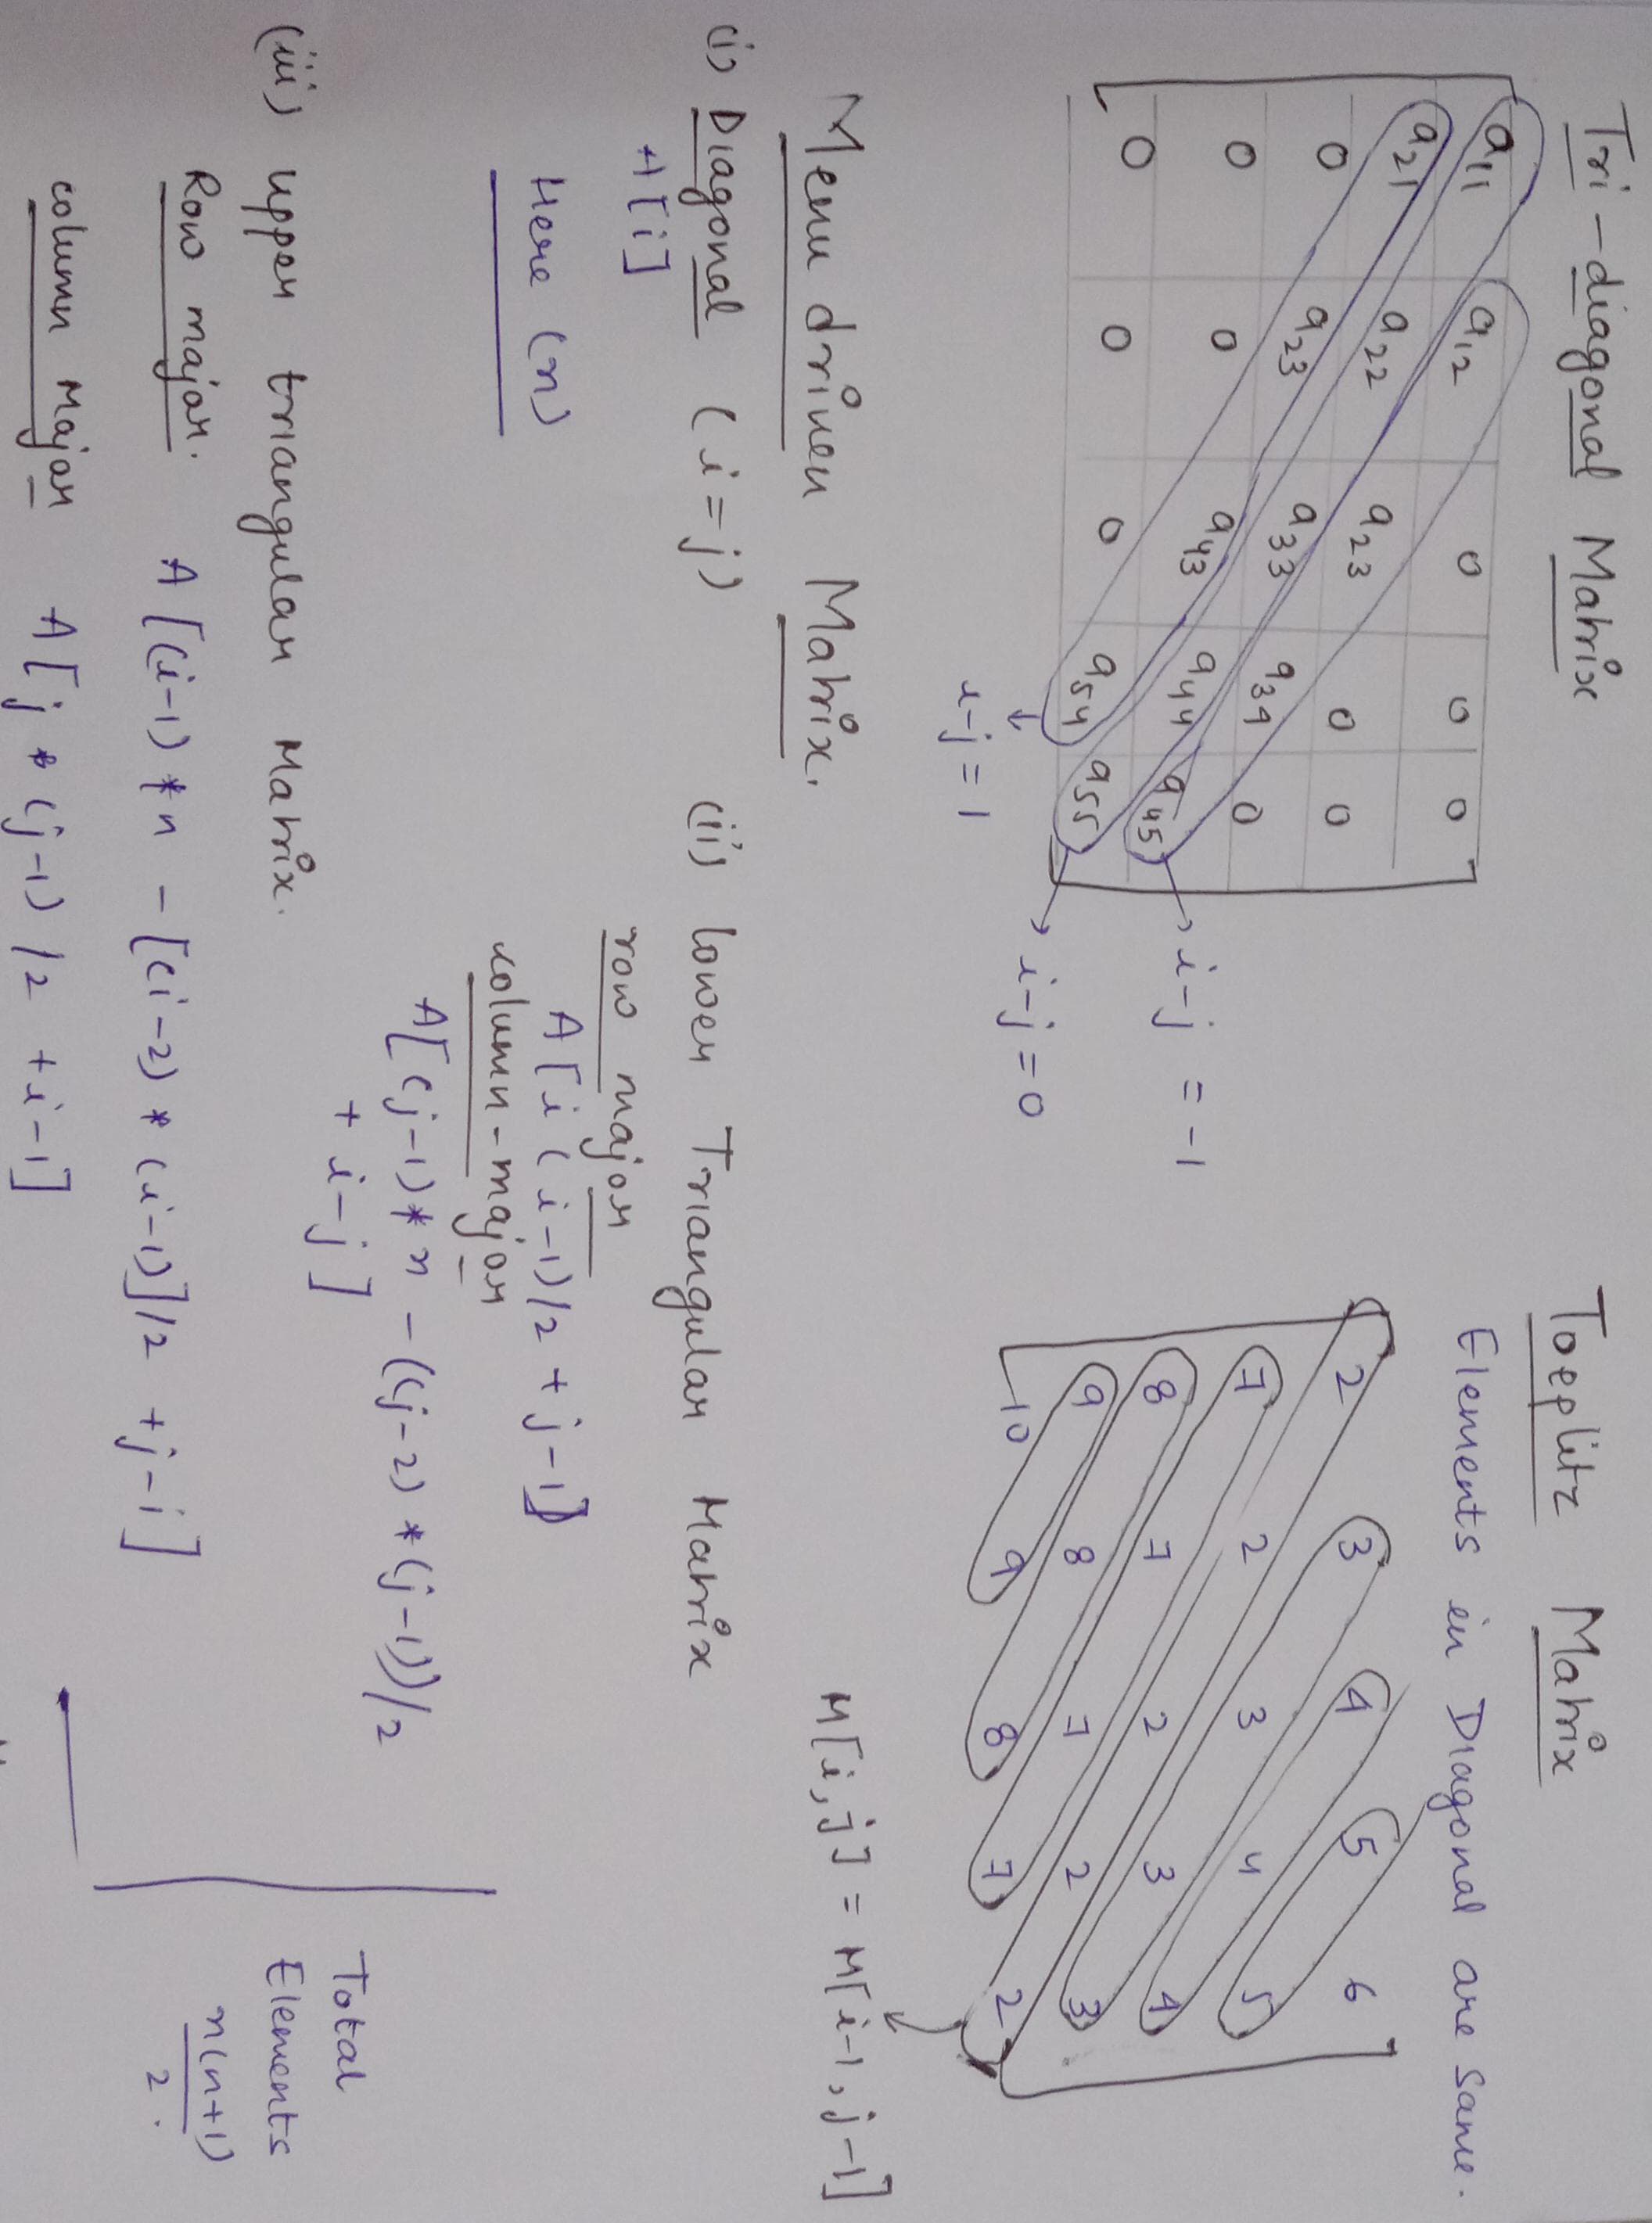 Tri-diagonal Matrix
a11 a12 0 0 0
a21 a22 a23 0 0
0 a23 a33 a34 0
0 0 a43 a44 a45
0 0 0 a54 a55
i-j = -1
i-j = 0
i-j = 1
Toeplitz Matrix
Elements in Diagonal are same.
2 3 4 5 6
7 2 3 4 5
8 7 2 3 4
9 8 7 2 3
10 9 8 7 2
M[i,j] = M[i-1, j-1]
Menu driven Matrix.
(i) Diagonal (i=j)
A[i]
Here (n)
(ii) lower Triangular Matrix
row major
A[i(i-1)/2 + j-1]
column-major
A[(j-1)*n - ((j-2)*(j-1))/2
+ i-j]
(iii) upper triangular Matrix.
Row major.
A[(i-1)*n - [(i-2)*(i-1)]/2 + j-i]
column Major
A[j*(j-1)/2 + i-1]
Total
Elements
n(n+1)
2.